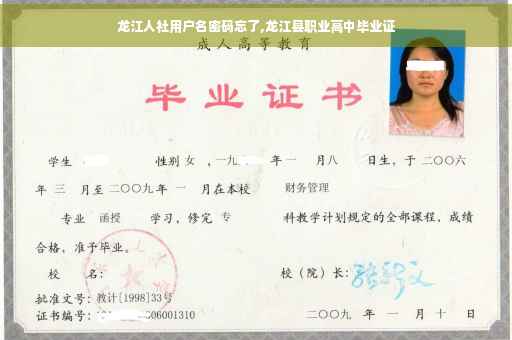 龙江人社用户名密码忘了,龙江县职业高中毕业证
成人高等教育
毕业证书
学生 性别 女 ,一九 年一 月八 日生,于二〇〇六
年 三 月至二〇〇九年 一 月在本校 财务管理
专业 函授 学习,修完 专 科教学计划规定的全部课程,成绩
合格,准予毕业。
校 名: 校(院)长:
批准文号:教计[1998]33号
证书编号: 06001310 二〇〇九 年 一 月 十 日